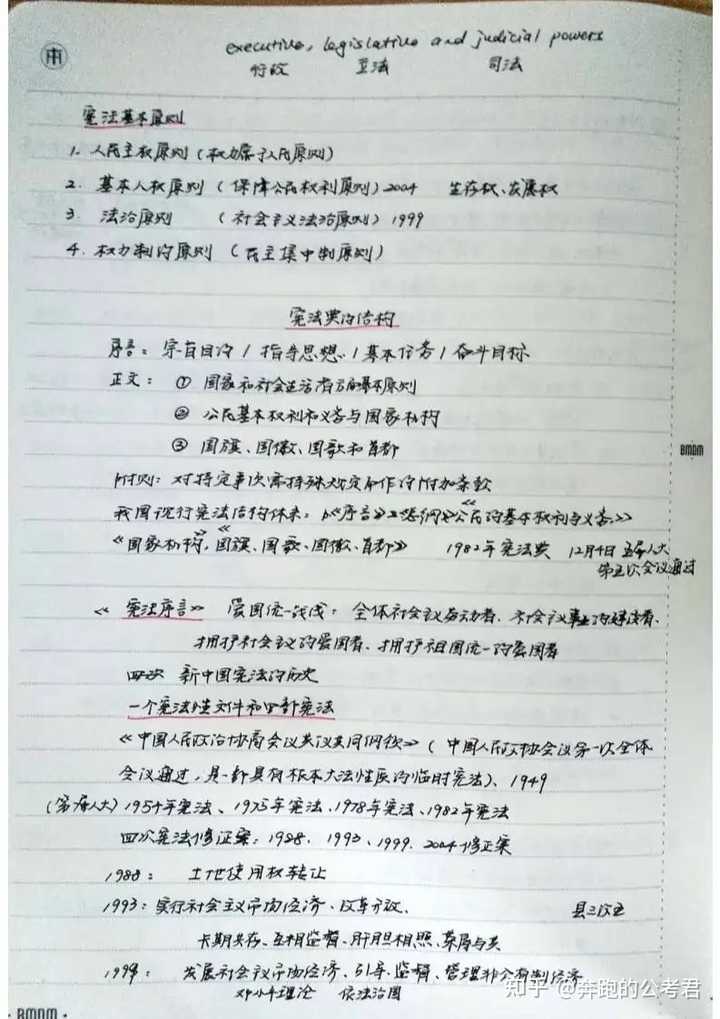 executive, legislative and judicial powers
行政 立法 司法
宪法基本原则
1. 人民主权原则(权力属于人民原则)
2. 基本人权原则(保障公民权利原则)2004 生存权、发展权
3. 法治原则 (社会主义法治原则)1999
4. 权力制约原则 (民主集中制原则)
宪法典的结构
序言:宗旨目的 / 指导思想 / 基本任务 / 奋斗目标
正文:① 国家和社会生活诸方面基本原则
② 公民基本权利和义务与国家机构
③ 国旗、国徽、国歌和首都
附则:对特定事项需特殊规定而作的附加条款
我国现行宪法结构体系:《序言》《总纲》《公民的基本权利与义务》
《国家机构,《国旗、国歌、国徽、首都》 1982年宪法典 12月4日 五届人大
第五次会议通过
BMDM
《宪法序言》 爱国统一战线:全体社会主义劳动者、社会主义事业的建设者、
拥护社会主义的爱国者、拥护祖国统一的爱国者
四次 新中国宪法的历史
一个宪法性文件和四部宪法
《中国人民政治协商会议共同纲领》(中国人民政协会议第一次全体
会议通过,是一部具有根本大法性质的临时宪法)、1949
(第一届人大)1954年宪法、1975年宪法、1978年宪法、1982年宪法
四次宪法修正案:1988、1993、1999、2004修正案
1988: 土地使用权转让
1993:实行社会主义市场经济、改革开放、 县三改五
长期共存、互相监督、肝胆相照、荣辱与共
1999: 发展社会主义市场经济、引导、监督、管理非公有制经济
邓小平理论 依法治国
BMDM
知乎 @奔跑的公考君